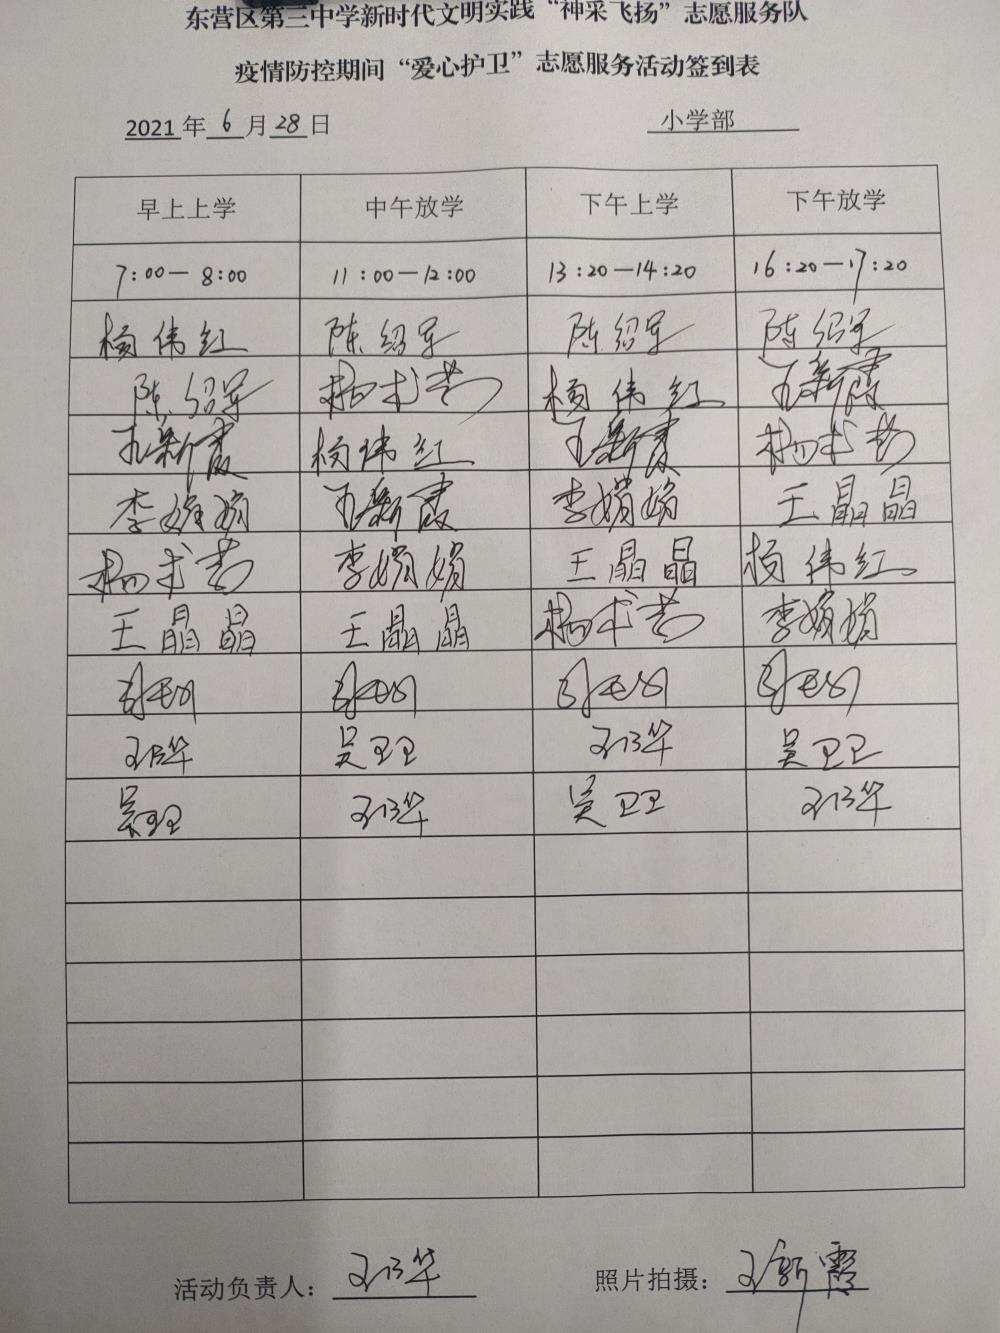 东营区第三中学新时代文明实践“神采飞扬”志愿服务队
疫情防控期间“爱心护卫”志愿服务活动签到表
2021年6月28日 小学部
早上上学 中午放学 下午上学 下午放学
7:00—8:00 11:00—12:00 13:20—14:20 16:20—17:20
杨伟红 陈绍军 陈绍军 陈绍军
陈绍军 杨伟红 王新霞
王新霞 杨伟红 王新霞
李娟娟 王新霞 李娟娟 王晶晶
李娟娟 王晶晶 杨伟红
王晶晶 王晶晶 李娟娟
吴卫卫 吴卫卫
吴卫卫 吴卫卫
活动负责人： 照片拍摄：王新霞